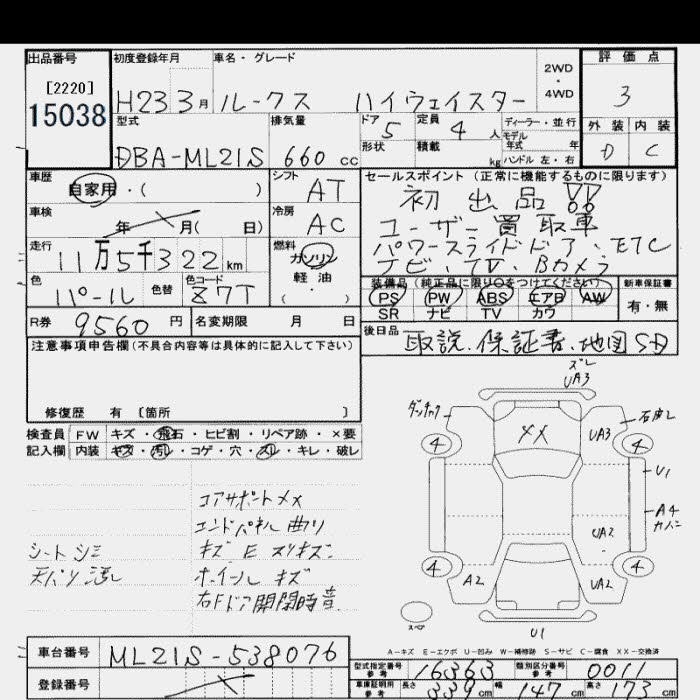 出品番号
[2220]
15038
初度登録年月
H23 3月
車名・グレード
ルークス ハイウェイスター
2WD
・
4WD
評価点
3
型式
DBA-ML21S
排気量
660 cc
ドア
5
形状
定員
4 人
積載
kg
ディーラー・並行
モデル
年式 年
ハンドル 左・右
外装 内装
D C
車歴
自家用・( )
シフト
AT
車検
年 月( 日)
冷房
AC
走行
11万5千322km
燃料
ガソリン
軽油
( ・ )
色
パール
色替
色コード
Z7T
R券
9560 円
名変期限 月 日
セールスポイント (正常に機能するものに限ります)
初出品!!
ユーザー買取車
パワースライドドア・ETC
ナビ TV・Bカメラ
装備品 (純正品に限り○をつけてください)
PS PW ABS エアB AW
SR ナビ TV カワ
新車保証書
有・無
後日品
取説.保証書.地図 SD
注意事項申告欄(不具合内容等は具体的に記入して下さい)
修復歴 有 〔箇所 〕
検査員 FW キズ・飛石・ヒビ割・リペア跡・×要
記入欄 内装 キズ・汚レ・コゲ・穴・スレ・キレ・破レ
コアサポートメメ
エンドパネル曲リ
シートシミ キズ E スリキズ
天バリ汚レ ホイールキズ
右Fドア開閉時音
ズレ
UA3
XX
4
UA3
4
U1
A4
カバー
UA2
4
A2
UA2
4
スペア
U1
A-キズ E-エクボ U-凹み W-補修跡 S-サビ C-腐食 XX-交換済
車台番号
ML21S-538076
登録番号
型式指定番号
参考
16363
類別区分番号
参考
0011
車庫証明用
参考
長さ 339cm 幅 147cm 高さ 173cm